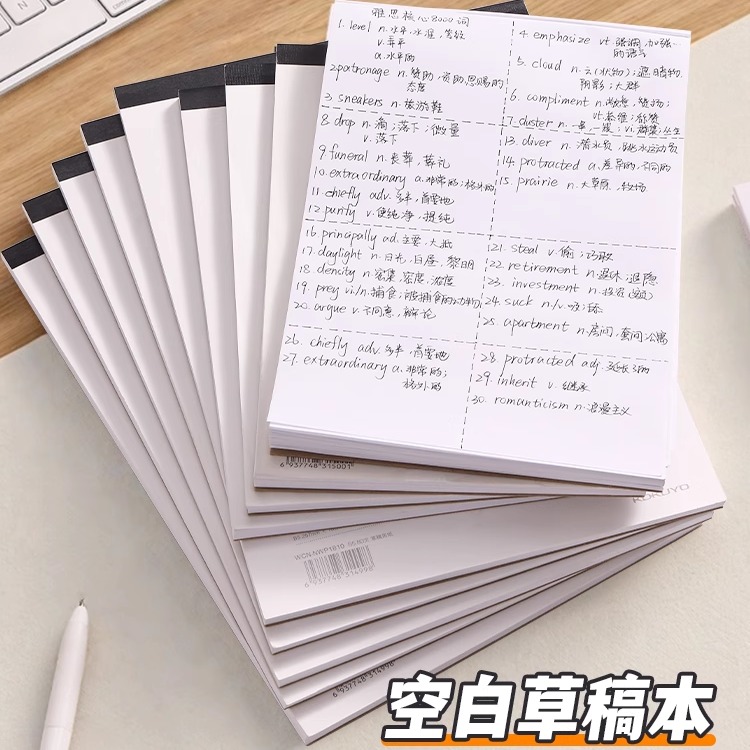 雅思核心8000词
1. level n.水平,水准,等级
v.弄平
a.水平的
2.patronage n.赞助,资助,恩赐的
态度
3. sneakers n.旅游鞋
4. emphasize vt.强调,加强…
的语气
5. cloud n.云(状物);遮暗物.
阴影;大群
6. compliment n.敬意,赞扬;
vt.恭维;称赞
7. cluster n.一串,一簇;vi.群集;丛生
8. drop n.滴;落下;微量
v.落下
9. funeral n.丧葬,葬礼
10. extraordinary a.非常的;格外的
11. chiefly adv.多半,首要地
12. purity v.使纯净,提纯
13. diver n.潜水员,跳水运动员
14. protracted a.差异的,不同的
15. prairie n.大草原,牧场.
16. principally ad.主要,大批
17. daylight n.日光,白昼,黎明
18. density n.密集,密度,浓度
19. prey vi/n.捕食;被捕食的动物
20. argue v.不同意,辩论
21. steal v.偷;巧取
22. retirement n.退休,退隐
23. investment n.投资(额)
24. suck n./v.吸;舔
25. apartment n.房间,套间;公寓
26. chiefly adv.多半,首要地
27. extraordinary a.非常的;
格外的
28. protracted adj.延长的
29. inherit v.继承
30. romanticism n.浪漫主义
6 937748 315001
KOKUYO
WCN-NWP1810
6 937748 314998
6 937748 314998
空白草稿本